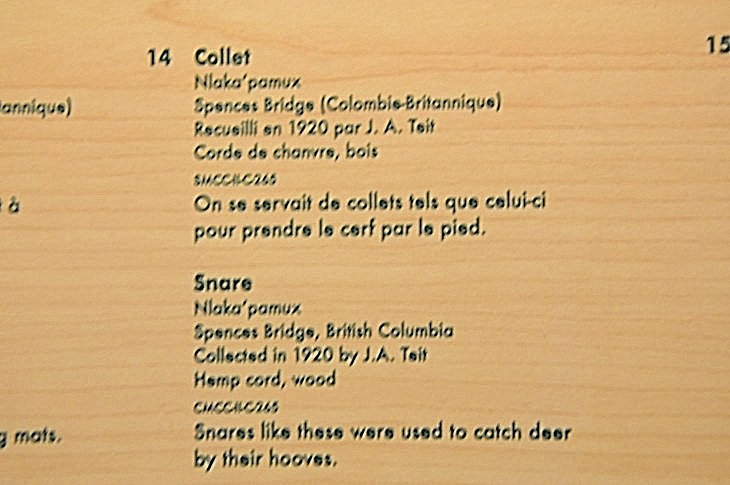 14 Collet
Nlaka'pamux
Spences Bridge (Colombie-Britannique)
Recueilli en 1920 par J. A. Teit
Corde de chanvre, bois
SMCCII-C265
On se servait de collets tels que celui-ci
pour prendre le cerf par le pied.
Snare
Nlaka'pamux
Spences Bridge, British Columbia
Collected in 1920 by J.A. Teit
Hemp cord, wood
CMCCII-C265
Snares like these were used to catch deer
by their hooves.
à
mats.
15